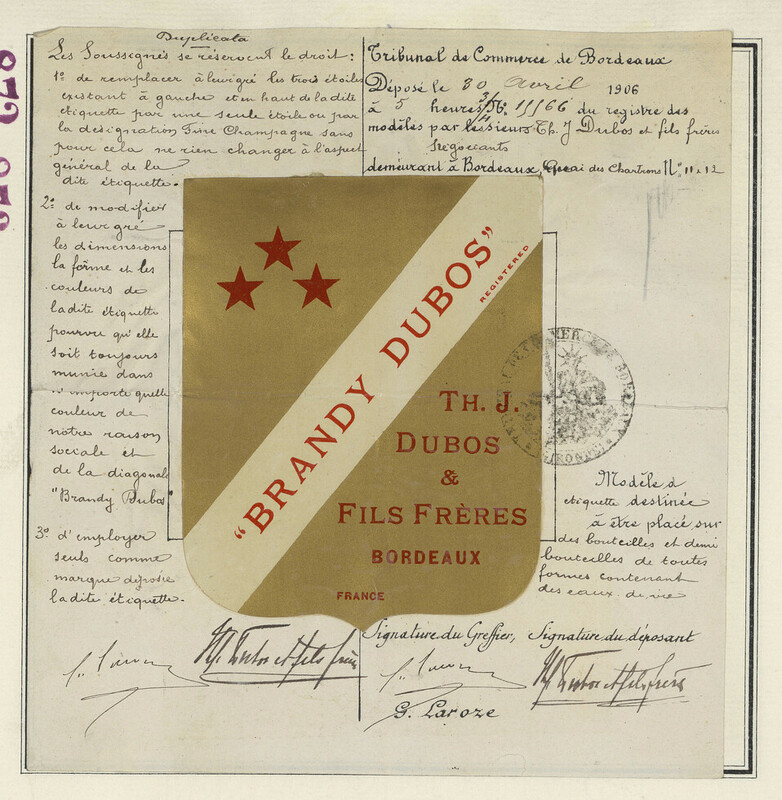 Duplicata
Les Soussignés se réservent le droit:
1º de remplacer à leur gré les trois étoiles
existant à gauche et en haut de la dite
étiquette par une seule étoile ou par
la désignation Fine Champagne sans
pour cela ne rien changer à l'aspect
général de la
dite étiquette.
2º de modifier
à leur gré
les dimensions
la forme et les
couleurs de
la dite étiquette
pourvu qu'elle
soit toujours
munie dans
n'importe quelle
couleur de
notre raison
sociale et
de la diagonale
"Brandy Dubos"
3º d'employer
seuls comme
marque déposée
la dite étiquette.
Th. J. Dubos et fils frères
Tribunal de Commerce de Bordeaux
Déposé le 30 avril 1906
à 5 heures Nº 11166 du registre des
modèles par les sieurs Th. J Dubos et fils frères
Négociants
demeurant à Bordeaux, Quai des Chartrons Nº 11 & 12
"BRANDY DUBOS"
REGISTERED
TH. J.
DUBOS
&
FILS FRÈRES
BORDEAUX
FRANCE
Modèle d
étiquette destinée
à être placé sur
des bouteilles et demi
bouteilles de toutes
formes contenant
des eaux de vie
Signature du Greffier, Signature du déposant
Th. J. Dubos et fils frères
G. Laroze